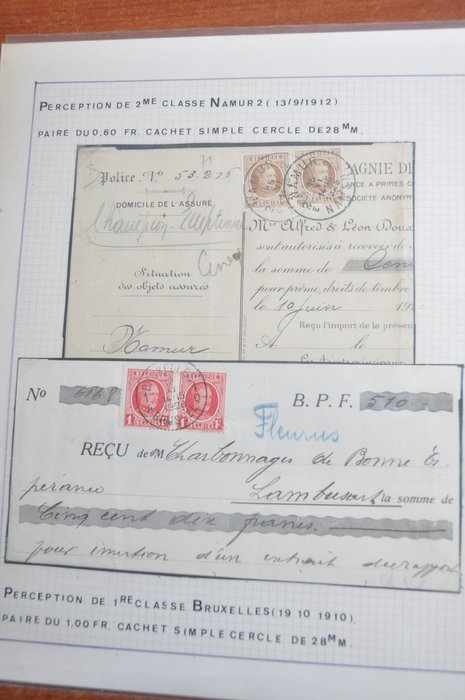 PERCEPTION DE 2ME CLASSE NAMUR 2 (13/9/1912)
PAIRE DU 0,60 FR. CACHET SIMPLE CERCLE DE 28 MM.
Police. No 53.275
DOMICILE DE L'ASSURÉ,
Situation
des objets assurés
Namur
NAMUR
AGNIE DE
LANCE A PRIMES
SOCIÉTÉ ANONYM
Mrs Alfred & Léon Doux
sont autorisés à recevoir de
la somme de Cent
pour prime, droits de timbre
le 10 juin 192
Reçu l'import de la présen
A le
No 6168
BELGIQUE
1 F
BELGIQUE
1 F
B. P. F. 510.-
Fleurus
REÇU de M Charbonnages de Bonne Es-
pérance Lambusart la somme de
Cinq cent dix francs.
pour insertion d'un extrait du rapport
PERCEPTION DE 1RE CLASSE BRUXELLES (19 10 1910).
PAIRE DU 1,00 FR. CACHET SIMPLE CERCLE DE 28 MM.